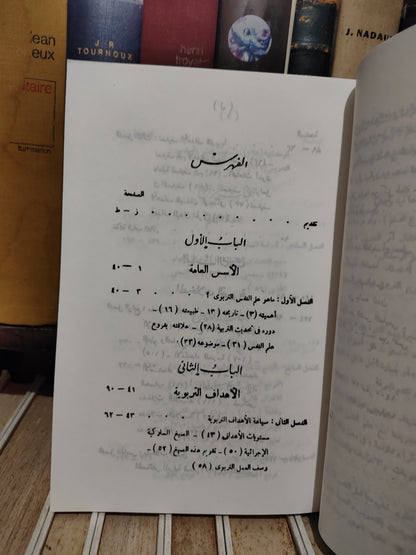 Jean
ieux
itaire
flammarion
J.-R.
TOURNOUX
henri
troyat
J. NADAU
الفهرس
الصفحة
تقديم . . . . . . . . . ز – ط
الباب الأول
الأسس العامة ١ – ٤٠
الفصل الأول : ماهو علم النفس التربوى ؟ . . . . ٣ – ٤٠
أهميته (٣) – تاريخه (١٣) – طبيعته (١٦) –
دوره فى تحديث التربية (٢٨) – علاقته بفروع
علم النفس (٣١) – موضوعه (٣٣).
الباب الثانى
الأهداف التربوية ٤١ – ٩٠
الفصل الثانى : صياغة الأهداف التربوية . . . . ٤٣ – ٦٢
مستويات الأهداف (٤٣) – الصيغ السلوكية
الإجرائية (٥٠) – تقويم هذه الصيغ (٥٢) –
وصف العمل التربوى (٥٨)